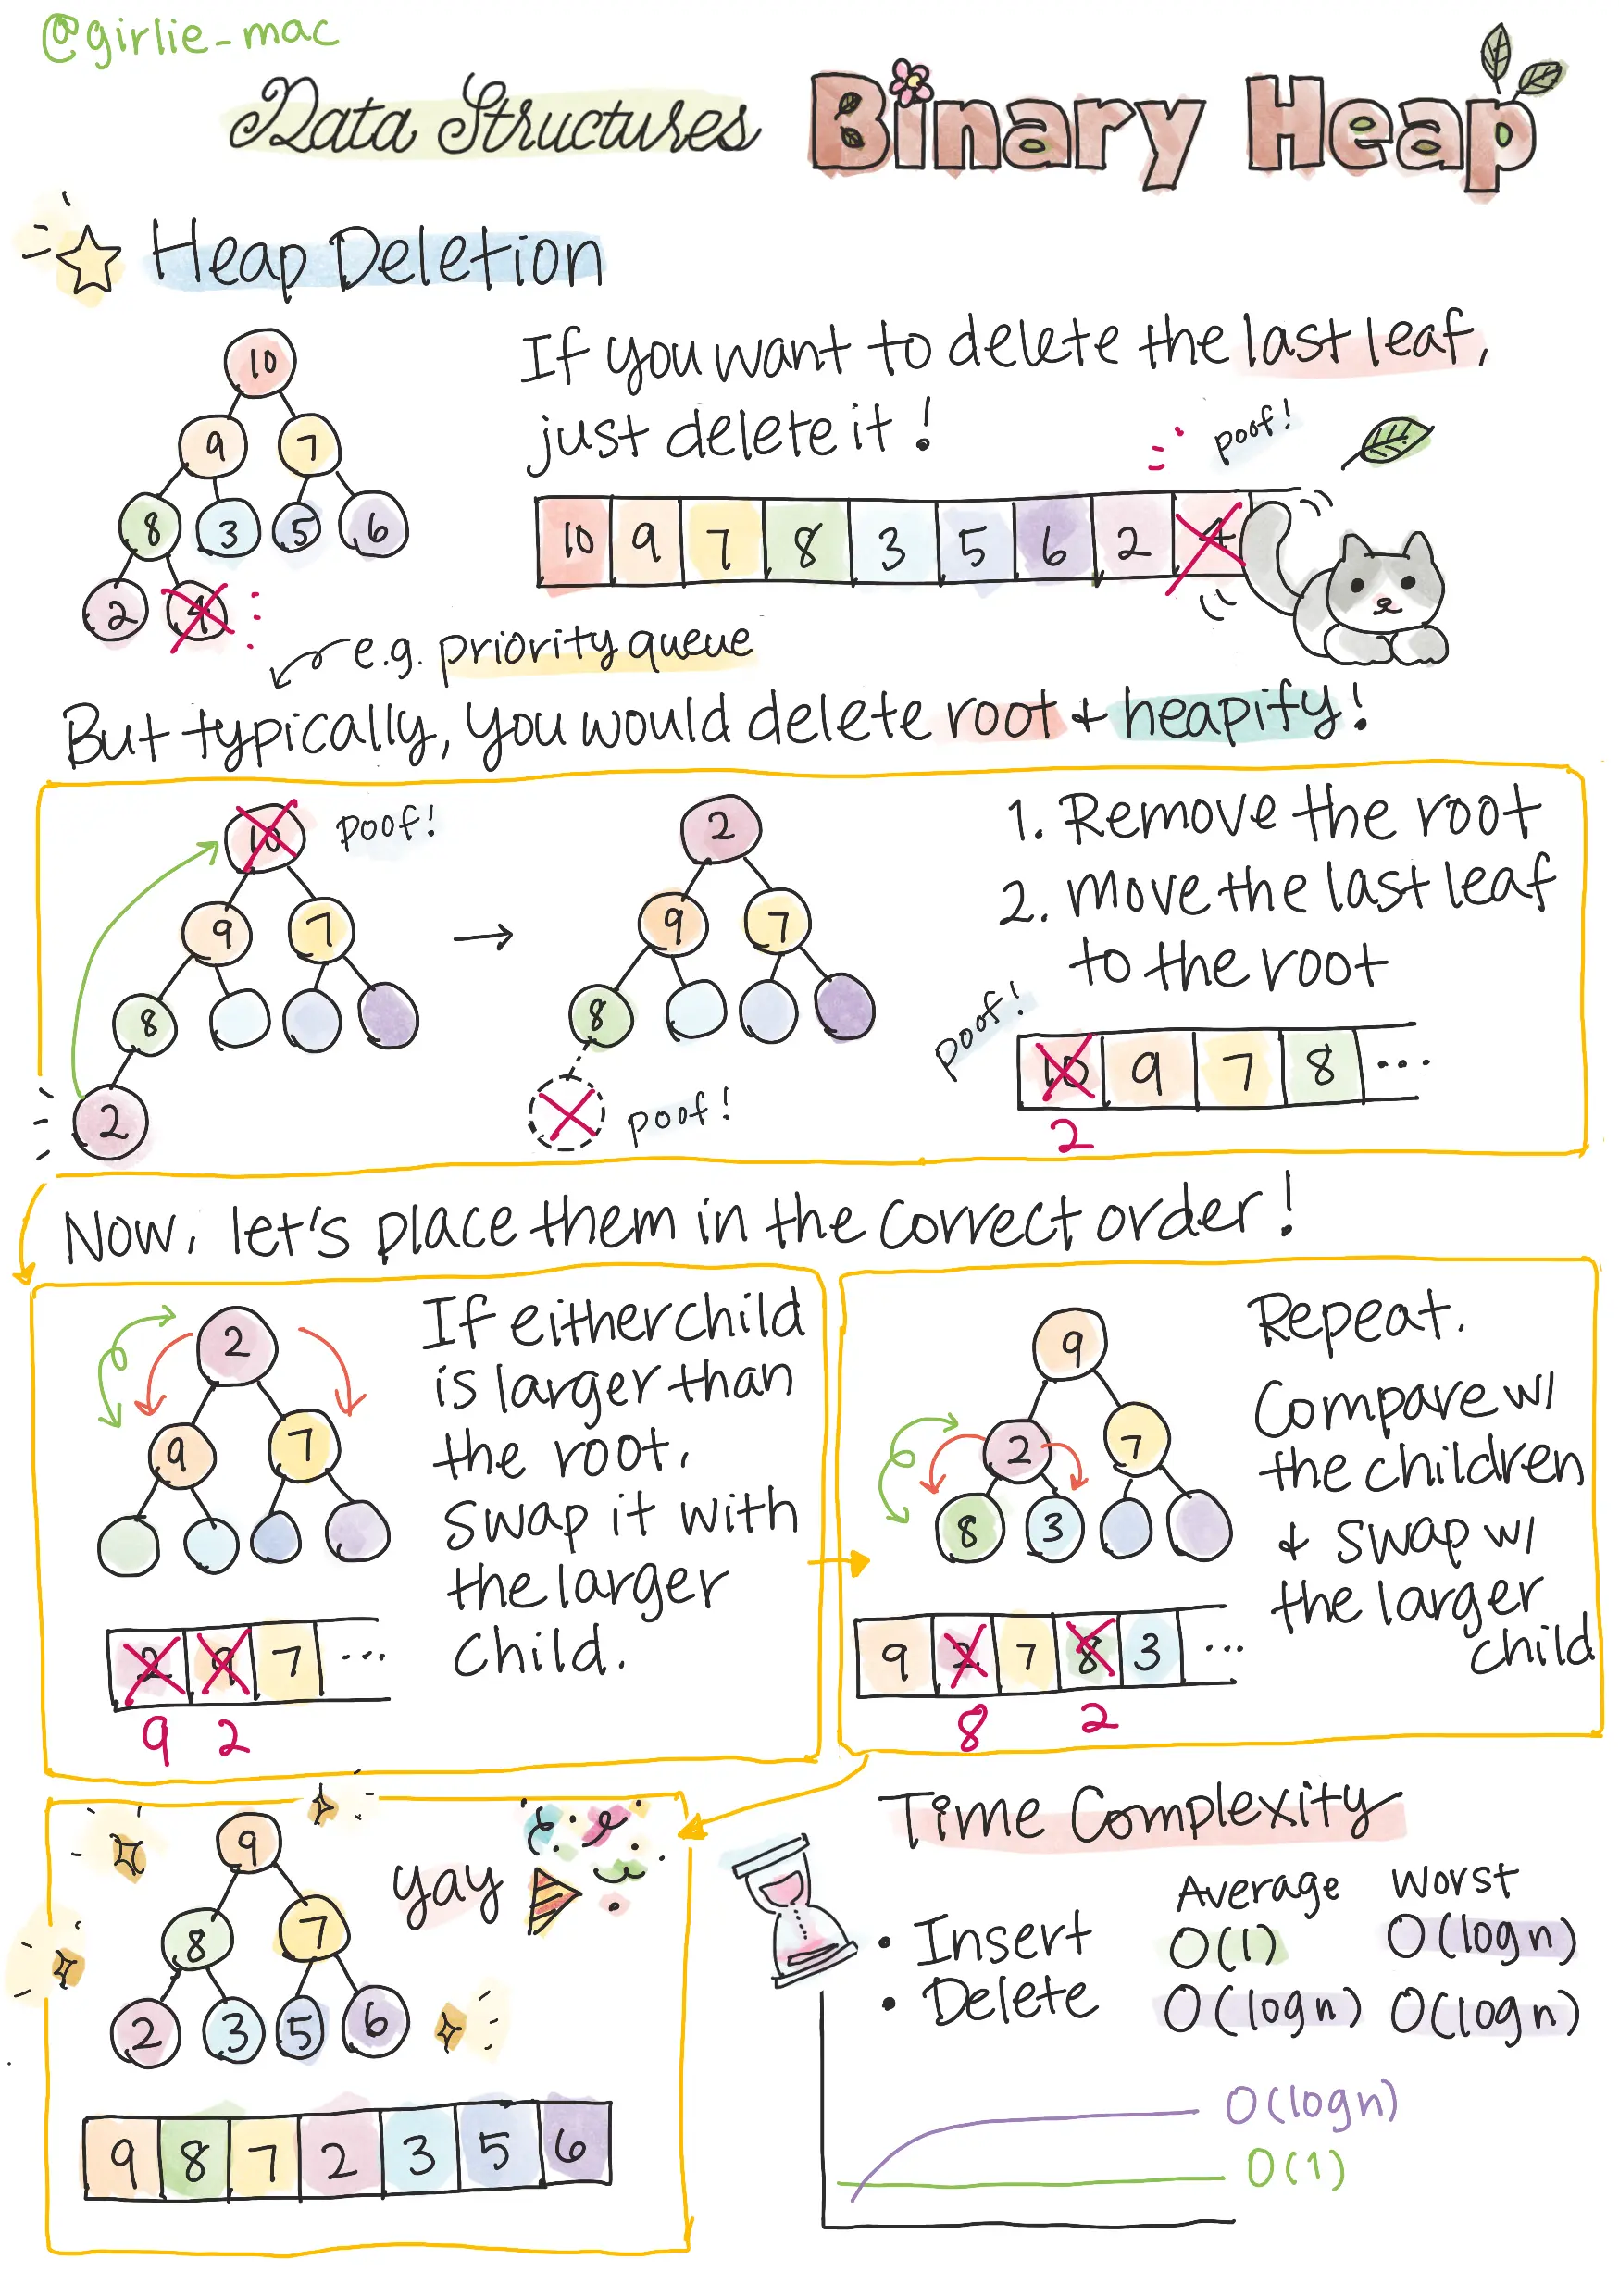 @girlie_mac
Data Structures Binary Heap
Heap Deletion
10
9 7
8 3 5 6
2 4
If you want to delete the last leaf,
just delete it!
poof!
10 9 7 8 3 5 6 2 4
e.g. priority queue
But typically, you would delete root & heapify!
10 poof!
9 7
8
2
→
2
9 7
8
poof!
1. Remove the root
2. Move the last leaf
to the root
poof!
10 9 7 8 ...
2
Now, let's place them in the correct order!
2
9 7
If either child
is larger than
the root,
swap it with
the larger
child.
2 9 7 ...
9 2
9
2 7
8 3
Repeat.
Compare w/
the children
& swap w/
the larger
child
9 2 7 8 3 ...
8 2
9
8 7
2 3 5 6
yay
9 8 7 2 3 5 6
Time Complexity
Average Worst
• Insert O(1) O(logn)
• Delete O(logn) O(logn)
O(logn)
O(1)